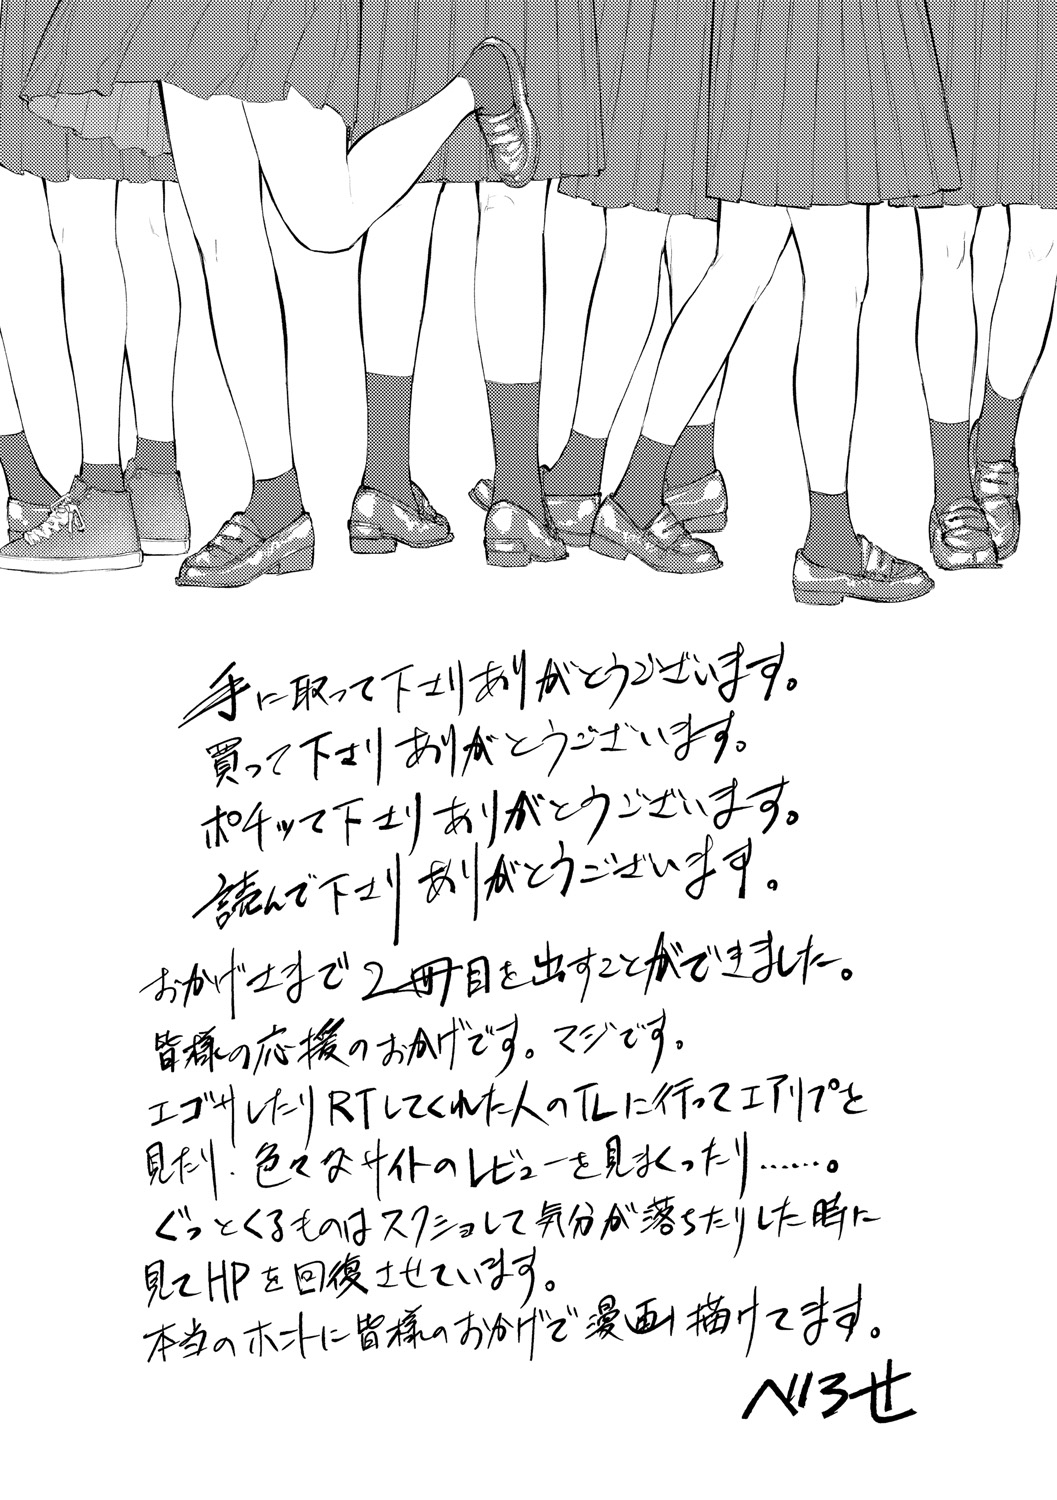 手に取って下さりありがとうございます。
買って下さりありがとうございます。
ポチッて下さりありがとうございます。
読んで下さりありがとうございます。
おかげさまで2冊目を出すことができました。
皆様の応援のおかげです。マジです。
エゴサしたりRTしてくれた人のTLに行ってエアリプを
見たり、色々なサイトのレビューを見まくったり……。
ぐっとくるものはスクショして気分が落ちたりした時に
見てHPを回復させています。
本当のホントに皆様のおかげで漫画描けてます。
べろせ